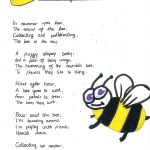 In summer you hear,
The sound of the bee,
Collecting and pollenating,
The bee in the sky.
A fuzzy stripey body,
And a pair of busy wings,
The humming of the bumble bee,
To flowers they like to cling.
Hour after hour,
A bee goes to work,
From petals to trees,
The bees they lurk.
Buzz said the bee,
I'm buzzing around,
I'm playing with friends,
Upside down.
Collecting up nectar,